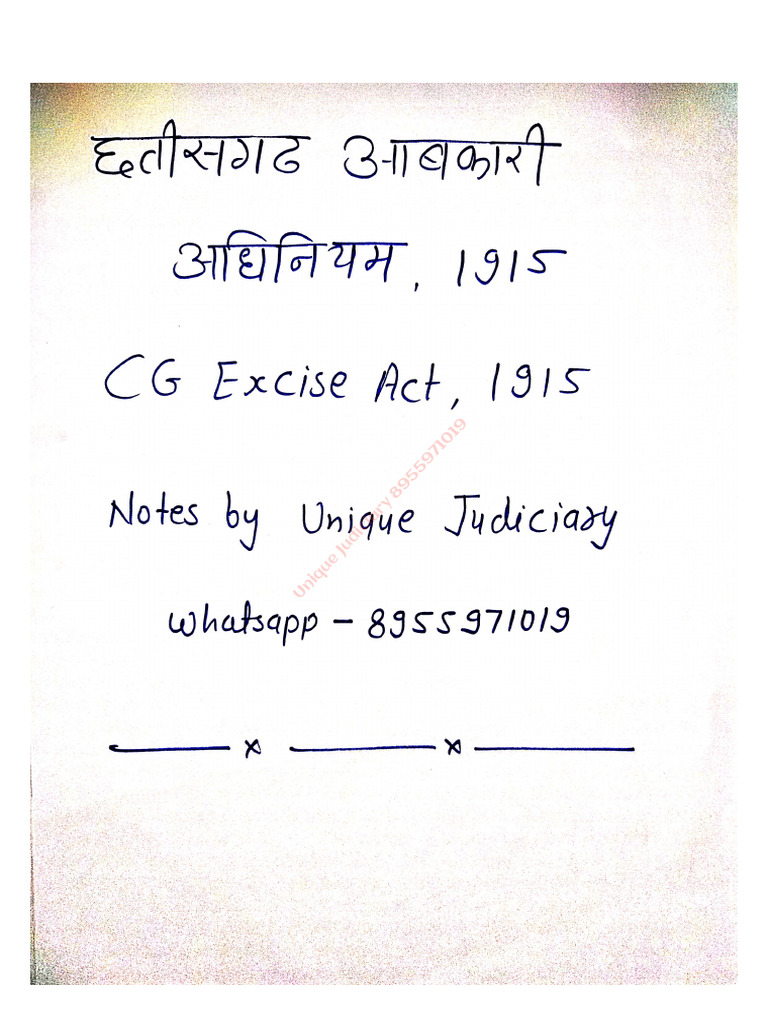 छतीसगढ आबकारी
अधिनियम, 1915
CG Excise Act, 1915
Notes by Unique Judiciary
Whatsapp - 8955971019
Unique Judiciary 8955971019